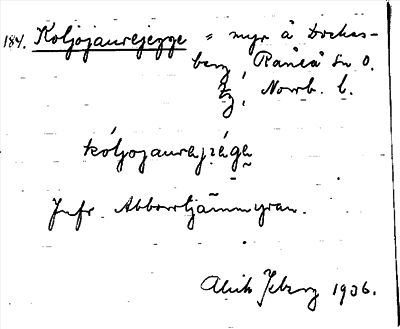 184. Koljojaurejegge = myr å Dockas-
berg, Råneå sn o.
tg, Norrb. l.
kóljojaurejεägε
Jufr Abborrtjärnmyran.
1936.